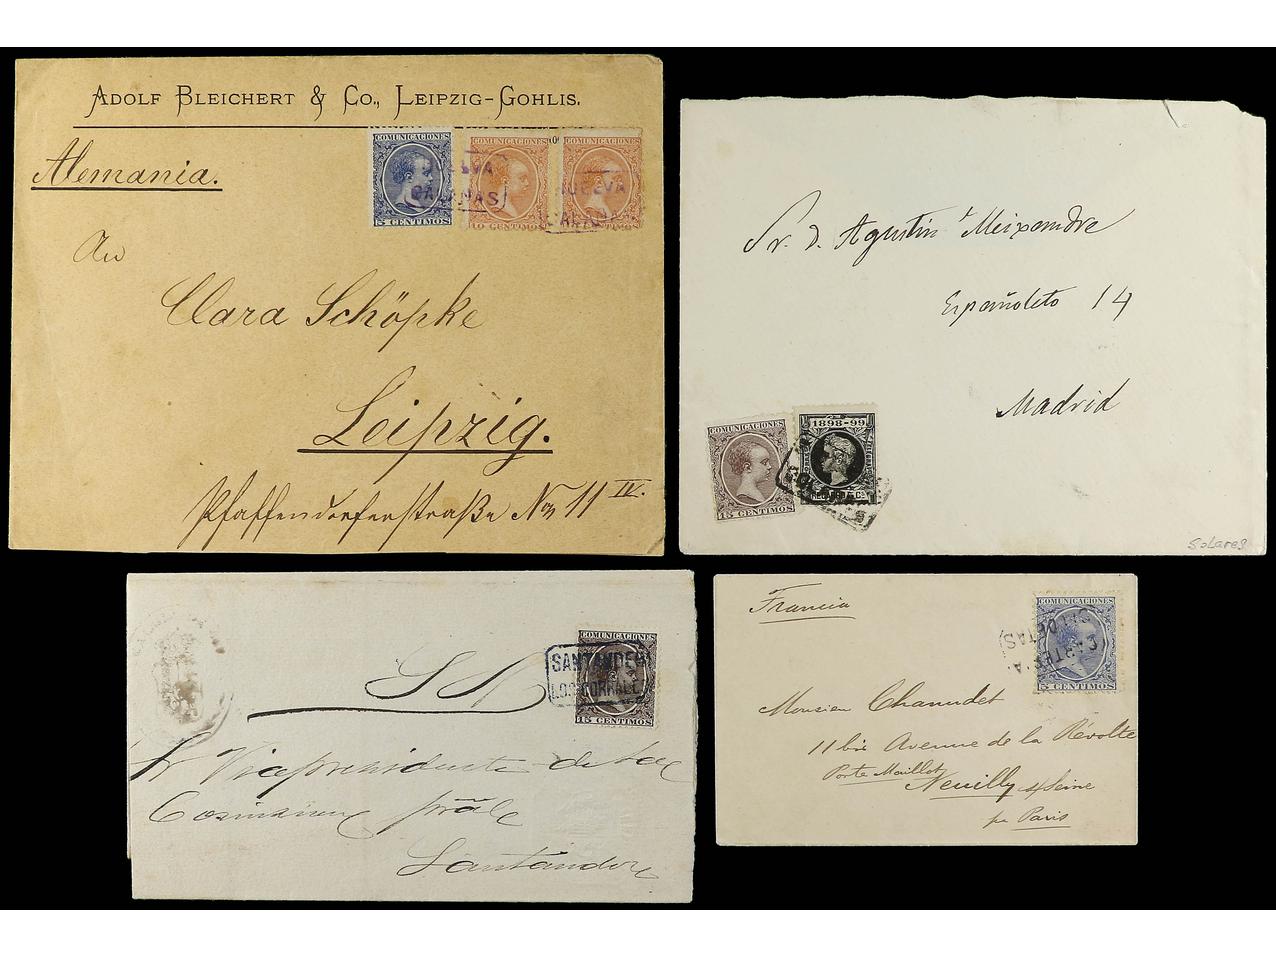 ADOLF BLEICHERT & CO., LEIPZIG-GOHLIS.
Alemania.
COMUNICACIONES
5 CENTIMOS
COMUNICACIONES
10 CENTIMOS
COMUNICACIONES
CENTIMOS
HUELVA
CALAÑAS
An
Clara Schöpke
Leipzig.
Pfaffendorferstraße No 11 IV.
Sr. D. Agustín Meixandre
Españoleto 14
Madrid
COMUNICACIONES
15 CENTIMOS
1898-99
Solares
COMUNICACIONES
15 CENTIMOS
SANTANDER
LOS CORRALE
S N
Vicepresidente de la
Comision
Santander
Francia
COMUNICACIONES
5 CENTIMOS
CARTERIA
Monsieur Chaudet
11 bis Avenue de la Révolte
Porte Maillot
Neuilly s/Seine
pr Paris